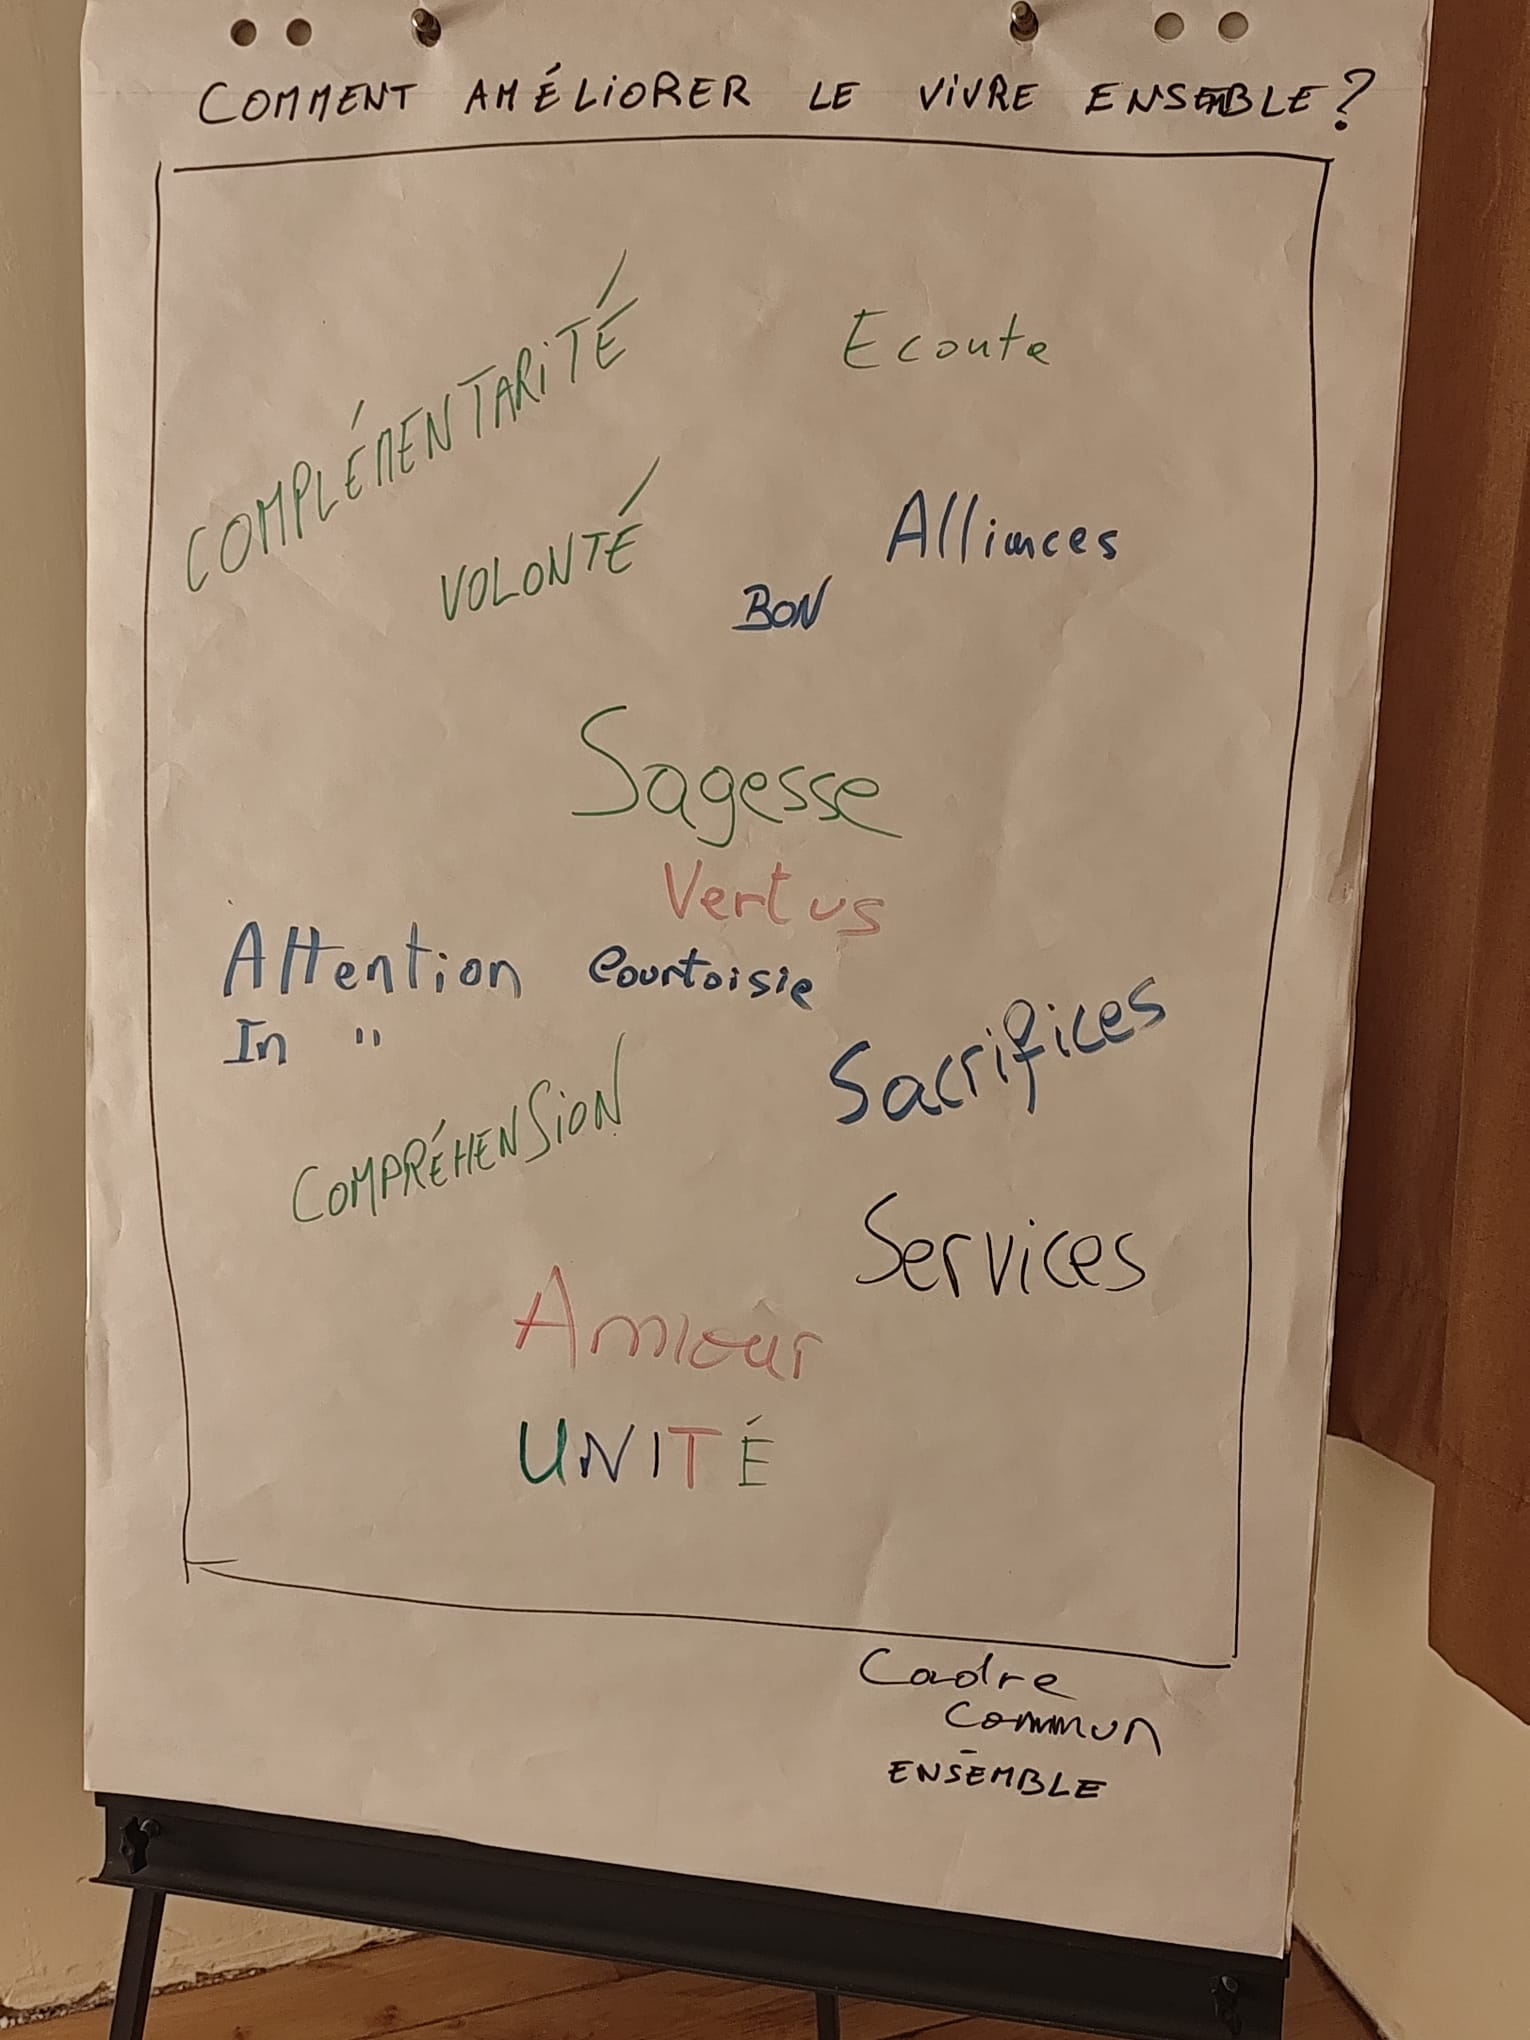 COMMENT AMÉLIORER LE VIVRE ENSEMBLE?
COMPLÉMENTARITÉ
Ecoute
VOLONTÉ
Alliances
BON
Sagesse
Vertus
Attention Courtoisie
In "
Sacrifices
COMPRÉHENSION
Services
Amour
UNITÉ
Cadre
Commun
ENSEMBLE